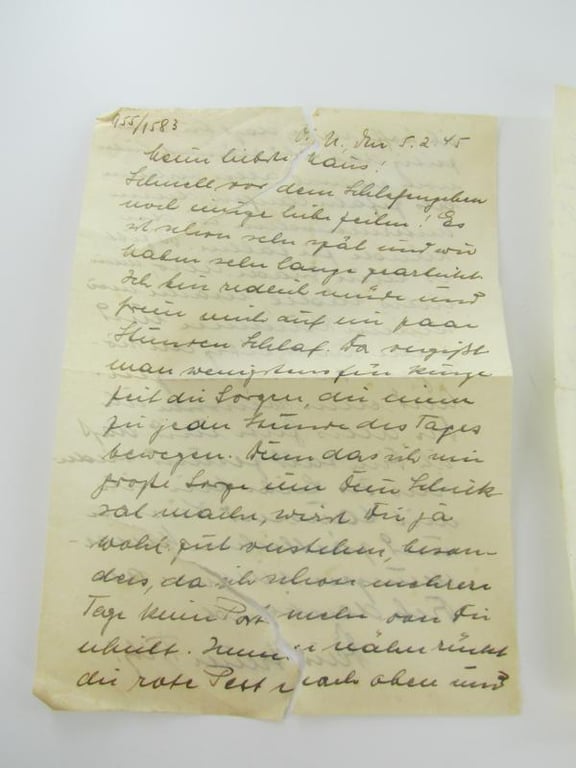 155/1583
O. U., den 5.2.45
mein liebster Hans!
Schnell vor dem Schlafengehen
noch einige liebe Zeilen! Es
ist schon sehr spät und wir
haben sehr lange gearbeitet.
Ich bin redlich müde und
freue mich auf ein paar
Stunden Schlaf. Da vergißt
man wenigstens für kurze
Zeit die Sorgen, die einen
zu jeder Stunde des Tages
bewegen. Denn das ich mir
große Sorge um Dein Schick
sal mache, wirst Du ja
wohl gut verstehen, beson-
ders, da ich schon mehrere
Tage keine Post mehr von Dir
erhielt. Immer näher rückt
die rote Pest nach oben und